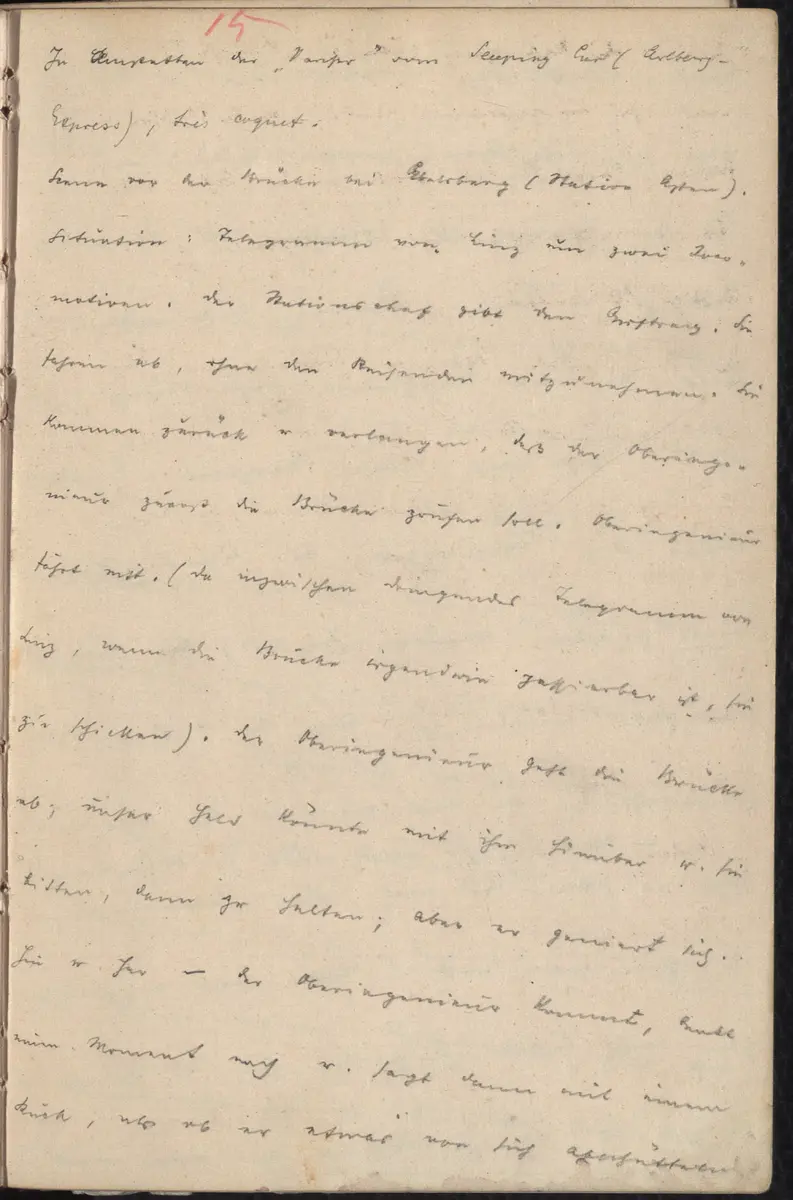 15
In Amstetten der „Pariser" vom Sleeping Car (Arlberg-
Express), très coquet.
Scene vor der Brücke bei Ebelsberg (Station Asten).
Situation: Telegramm von Linz um zwei Loco-
motiven. Der Stationschef gibt den Auftrag. Sie
fahren ab, ohne den Reisenden mitzunehmen. Sie
kommen zurück u verlangen, daß der Oberinge-
nieur zuerst die Brücke prüfen soll. Oberingenieur
fährt mit. (Da inzwischen dringendes Telegramm von
Linz, wenn die Brücke irgendwie passierbar ist, sie
zu schicken). Der Oberingenieur geht die Brücke
ab; unser Held könnte mit ihm hinüber u. sie
bitten, dann zu halten; aber er geniert sich.
Hin u her — der Oberingenieur kommt, denkt
einen Moment nach u. sagt dann mit einem
Ruck, als ob er etwas von sich abschütteln